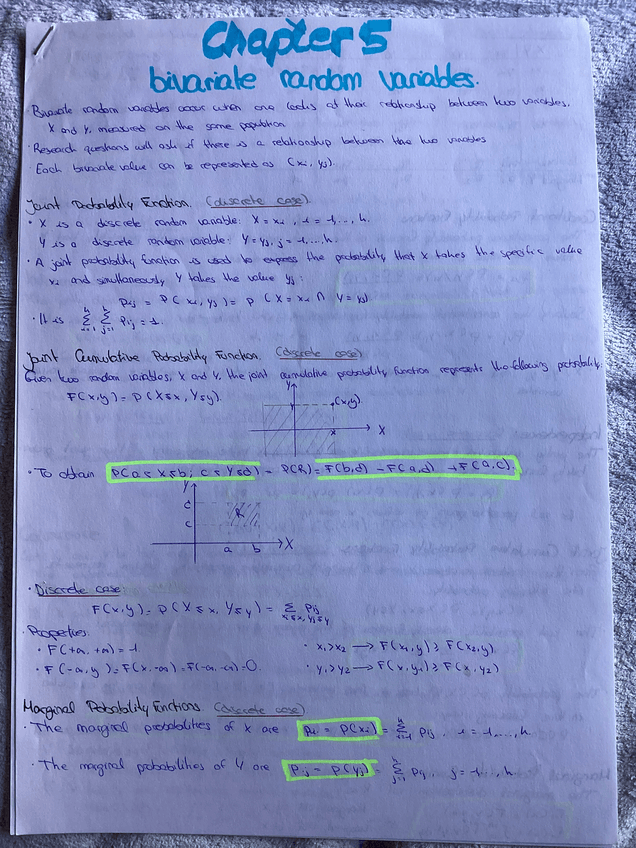 Chapter 5
bivariate random variables.
Bivariate random variables occur when one looks at their relationship between two variables,
X and Y, measured on the same population.
· Research questions will ask if there is a relationship between the two variables
· Each bivariate value can be represented as (xi, yj).
Joint Probability Function. (discrete case)
· X is a discrete random variable: X = xi, i = 1,..., h.
Y is a discrete random variable: Y = yj, j = 1,..., h.
· A joint probability function is used to express the probability that X takes the specific value
xi and simultaneously Y takes the value yj:
Pij = P(xi, yj) = P(X = xi ∩ Y = yj)
· It is Σ Σ Pij = 1.
Joint Cumulative Probability Function. (discrete case)
Given two random variables, X and Y, the joint cumulative probability function represents the following probability.
F(x,y) = P(X≤x, Y≤y).
Y
(x,y)
x
X
· To obtain P(a≤X≤b; c≤Y≤d) = P(R) = F(b,d) - F(a,d) + F(a,c).
Y
R
c
a b X
· Discrete case:
F(x,y) = P(X≤x, Y≤y) = Σ Pij
xi≤x, yj≤y
· Properties:
· F(+∞, +∞) = 1 · x1>x2 → F(x1,y) ≥ F(x2,y)
· F(-∞, y) = F(x, -∞) = F(-∞, -∞) = 0. · y1>y2 → F(x,y1) ≥ F(x,y2)
Marginal Probability Functions (discrete case)
· The marginal probabilities of X are Pi = P(xi) = Σ Pij, i = 1,..., h
· The marginal probabilities of Y are Pj = P(yj) = Σ Pij, j = 1,..., h